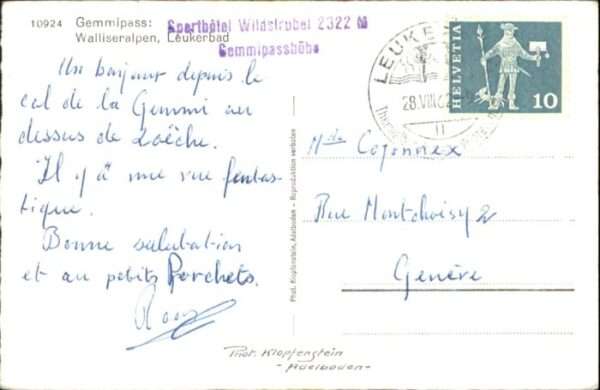 10924 Gemmipass:
Walliseralpen, Leukerbad
Sporthotel Wildstrubel 2322 M
Gemmipasshöhe
Un bonjour depuis le
col de la Gemmi au
dessus de Loèche.
Il y a une vue fantas-
tique.
Bonne salutation
et au petits Porchets.
LEUKERBAD
28.VIII.62
HELVETIA
10
Mlle Cojonnex
Rue Montchoisy 2
Genève
Phot. Klopfenstein, Adelboden - Reproduktion verboten
Phot. Klopfenstein
- Adelboden -